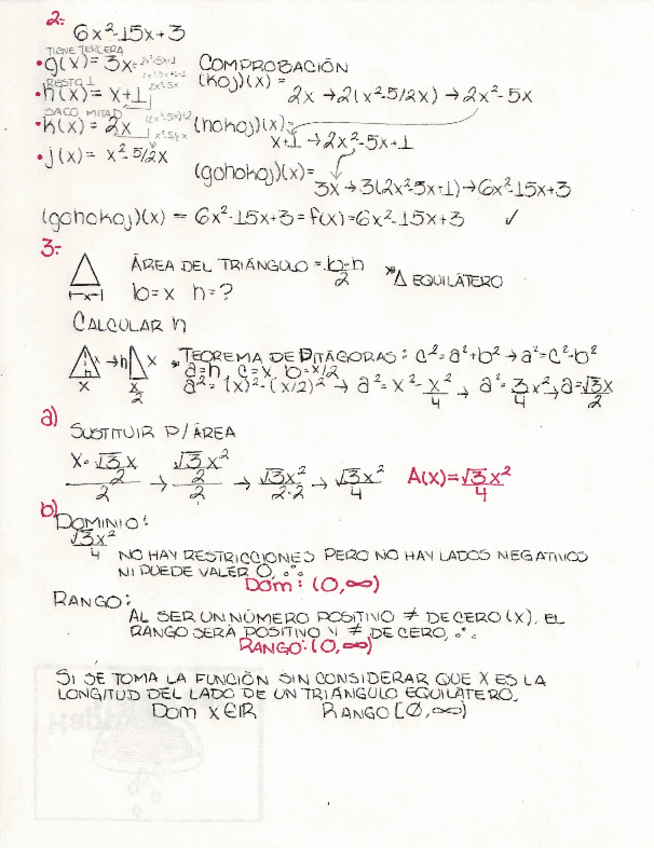 2.-
6x²-15x+3
TIENE TERCERA
• g(x)= 3x
COMPROBACIÓN
RESTO 1
(koj)(x) =
• h(x)= x+1
2x → 2(x²-5/2x) → 2x²-5x
SACO MITAD
• k(x) = 2x
(hokoj)(x) =
x+1 → 2x²-5x+1
• j(x)= x²-5/2x
(gohokoj)(x)=
3x → 3(2x²-5x+1) → 6x²-15x+3
(gohokoj)(x) = 6x²-15x+3 = f(x)=6x²-15x+3 ✓
3.-
ÁREA DEL TRIÁNGULO = b·h/2 *Δ EQUILÁTERO
⊢x⊣ b=x h=?
CALCULAR h
x x → h x x/2 * TEOREMA DE PITÁGORAS: c²=a²+b² → a²=c²-b²
a=h, c=x, b=x/2
a²=(x)²-(x/2)² → a²=x²-x²/4 → a²=3/4x² → a=√3x/2
a)
SUSTITUIR P/ÁREA
x·√3x/2/2 → √3x²/2/2 → √3x²/2·2 → √3x²/4 A(x)=√3x²/4
b)
DOMINIO:
√3x²/4
NO HAY RESTRICCIONES PERO NO HAY LADOS NEGATIVOS
NI PUEDE VALER 0, ∴
Dom: (0,∞)
RANGO:
AL SER UN NÚMERO POSITIVO ≠ DE CERO (X), EL
RANGO SERÁ POSITIVO Y ≠ DE CERO, ∴
RANGO: (0,∞)
SI SE TOMA LA FUNCIÓN SIN CONSIDERAR QUE X ES LA
LONGITUD DEL LADO DE UN TRIÁNGULO EQUILÁTERO.
Dom x∈ℝ RANGO [0,∞)